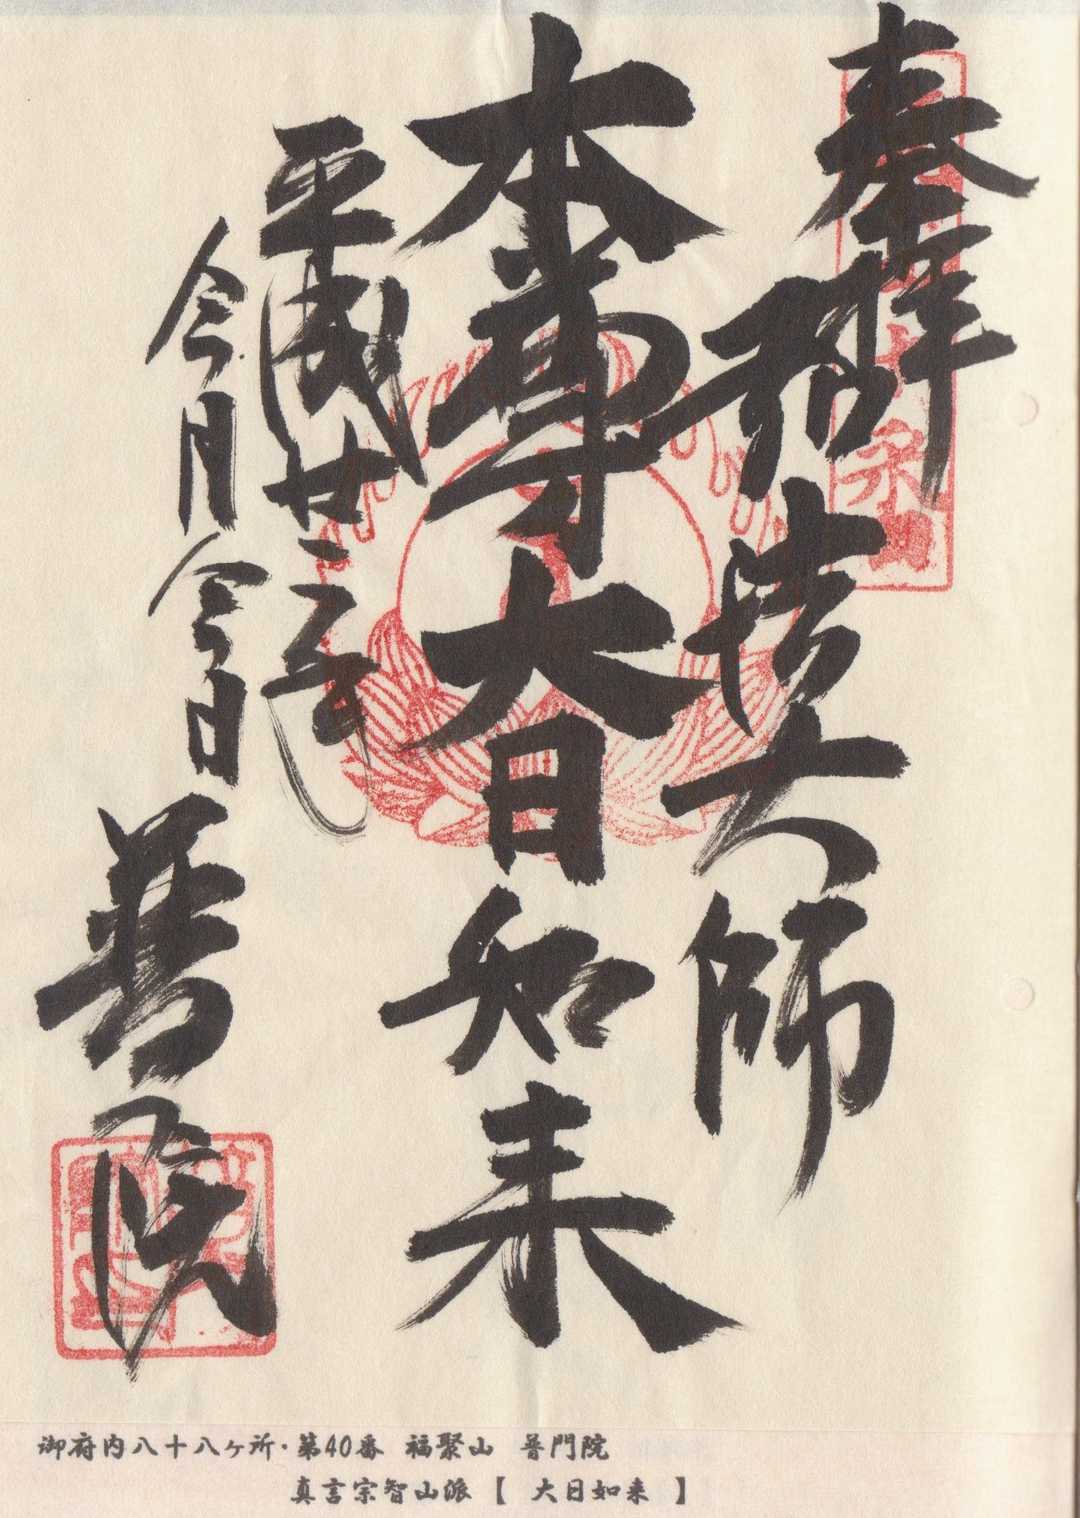 奉拝 弘法大師
本尊大日如来
平成廿三年
今月今日
普門院
御府内八十八ヶ所・第40番 福聚山 普門院
真言宗智山派【 大日如来 】